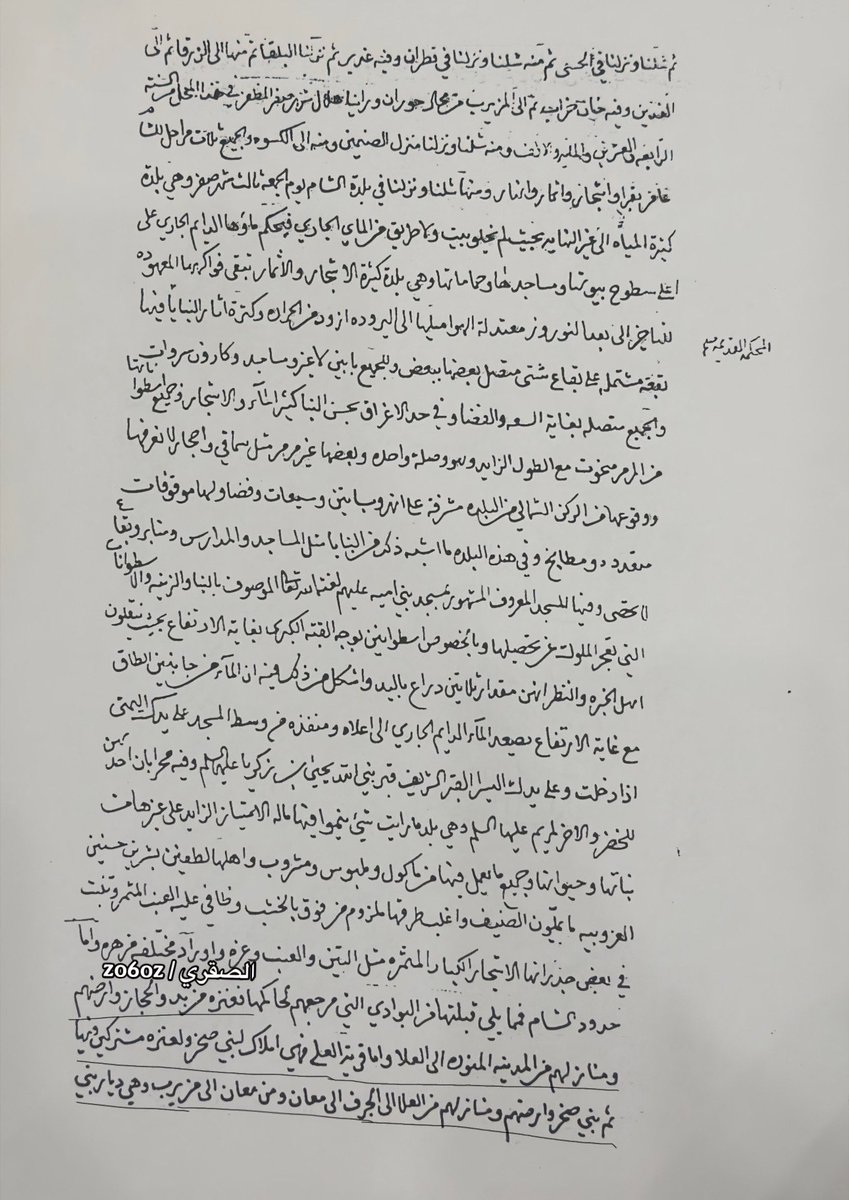 ثم شلنا ونزلنا في الحسى ثم منه شلنا ونزلنا في قطران وفيه غدير ثم نزلنا البلقا ثم منها الى الزرقا ثم الى
وفيه خان خراب ثم الى المزيريب من محال حوران وراينا هلال شهر صفر المظفر في هذا المحل من السنة
الرابعه والعشرين والمايه والالف ومنه شلنا ونزلنا منزل الصنمين ومنه الى الكسوه والجميع ثلاث مراحل
واشجار واثمار وانهار ومنها شلنا ونزلنا في بلدة الشام يوم الجمعة ثالث شهر صفر وهي بلدة
كثيرة المياه الى غير النهايه بحيث لم يخلو بيت ولا طريق من الماي الجاري فيحكم ماؤها الدايم الجاري على
اعلى سطوح بيوتها ومساجدها وحماماتها وهي بلدة كثيرة الاشجار والأثمار تبقى فواكهها المعهوده
الى بعد النوروز معتدلة الهوا ميلها الى البروده ازود من الحراره وكثرة اثار البنايا فيها
المحكمة القديمة
بقعة مشتمله على بقاع شتى متصل بعضها ببعض وللجميع بابين لا غير ومساجد
والجميع متصله بغاية السعه والفضا وفي حد الاغراق بحسن البنا كثير الماء والاشجار وجميع اسطوا
ناتها
من المرمر منحوت مع الطول الزايد وهو وصلة واحده وبعضها غير مرمر مثل سماقي واحجار لا نعرفها
ووقوعها من الركن الشمالي من البلده مشرفة على وفضا ولها موقوفات
متعدده ومطابخ وفي هذه البلده ما اشبه ذلك من البنايا مثل المساجد والمدارس ومنابر وبقاع
لا تحصى وفيها المسجد المعروف المشهور بمسجد بني اميه عليهم لعنة الله تعالى الموصوف بالبنا والزينه والاسطوانات
التي تعجز الملوك عن تحصيلها وبالخصوص اسطوانتين بوجه القبه الكبرى بغاية الارتفاع بحيث ينقلون
اهل الخبره والنظر انهن مقدار ثلاثين دراع باليد واشكل من ذلك فيه ان الماء من جانبين الطاق
مع غاية الارتفاع يصعد الماء الدايم الجاري الى اعلاه ومنفذه من وسط المسجد على يدك اليمنى
اذا دخلت وعلى يدك اليسرا القبر الشريف قبر بني الله يحيى ابن زكريا عليه السلم وفيه محرابان احدهن
للخضر والاخر لمريم عليها السلم وهي بلد ما رايت شيئ ينموا فيها ماله الامتياز الزايد على غيرها من
نباتها وحيوانها وجميع ما يعمل فيها من ماكول وملبوس ومشروب واهلها لطيفين بشرين حسنين
العزوبيه ما يملون الضيف واغلب طرقها ملزوم من فوق بالخشب وظافي عليه العنب المثمر وتنبت
في بعض جدرانها الاشجار الكبار المثمره مثل التين والعنب وغيره واوراد مختلفه مزهره واما
الصقوري / zo6oz
حدود الشام فمما يلي قبلتها من البوادي التي مرجعهم لحاكمها فعنزه من نجد والحجاز وارضهم
ومنازلهم من المدينه المنوره الى العلا واما قرية العلى فهي املاك لبني صخر ولعنزه مشتركين فيها
ثم بني صخر وارضهم ومنازلهم من العلا الى الجرف الى معان ومن معان الى مزيريب وهي ديار بني